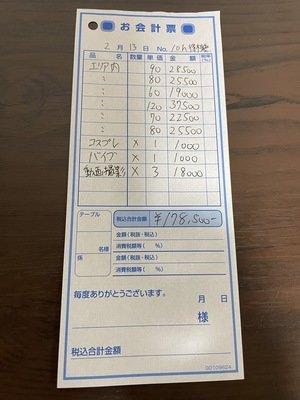 お会計票
2月 13日 No.
品名 数量 単価 金額
エリア内 90 28500
〃 80 25500
〃 60 19000
〃 120 37500
〃 70 22500
〃 80 25500
コスプレ × 1 1000
バイブ × 1 1000
動画撮影 × 3 18000
テーブル 税込合計金額 ¥178,500-
金額(税抜・税込)
名様 消費税額等( %)
係 金額(税抜・税込)
消費税額等( %)
毎度ありがとうございます。 月 日
様
税込合計金額